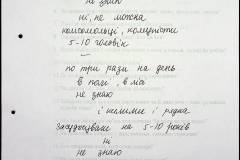 не знаю
ні, не можна
комсомольці, комуністи
5-10 чоловік
—
по три рази на день
в полі, в лісі
не знаю
і целими і рядка
засуджували на 5-10 років
ні
не знаю